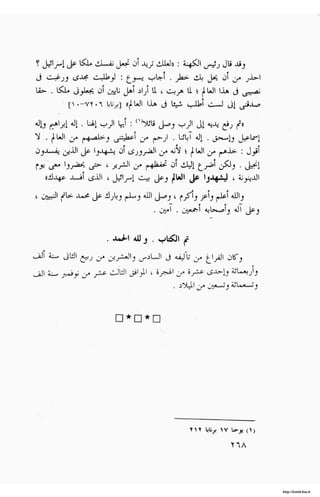 وقد قال رئيس الكهنة : «لعلك تريد أن تجعل نفسك ملكا على إسرائيل ؟
احذر من أن يحل بك خطر . أجاب يسوع : لو طلبت مجدى ورغبت فى
نصيبى فى هذا العالم ؛ لما هربت ، لما أراد أهل نايين أن يجعلونى ملكا . حقا
صدقنى إننى لست أطلب شيئا فى هذا العالم» [برنابا ٢٠٦ : ٧-١٠]
ثم رفع يديه إلى الرب وصلى قائلا(١) : أيها الرب إلهنا . إله إبراهيم وإله
إسماعيل وإسحق . إله آبائنا . ارحم من أعطيتنى وخلصهم من العالم . لا
أقول : خذهم من العالم ؛ لأنه من الضرورى أن يشهدوا على الذين يفسدون
إنجيلى . ولكن أضرع إليك أن تحفظهم من الشرير ، حتى يحضروا معى يوم
الدينونة ، ليشهدوا على العالم وعلى بيت إسرائيل ، الذى أفسد عهدك»
وعلى آله وصحابته أجمعين . آمين .
تم الكتاب . ولله الحمد .
وكان الفراغ من تأليفه فى السادس والعشرين من ربيع الثانى سنة ألف
وأربعمائة وإحدى عشرة من الهجرة ، الموافق الثالث عشر من نوفمبر سنة ألف
وتسعمائة وتسعين من الميلاد .
□ * □ * □
(١) يوحنا ١٧ برنابا ٢١٢
٢٦٨
http://kotob.has.it